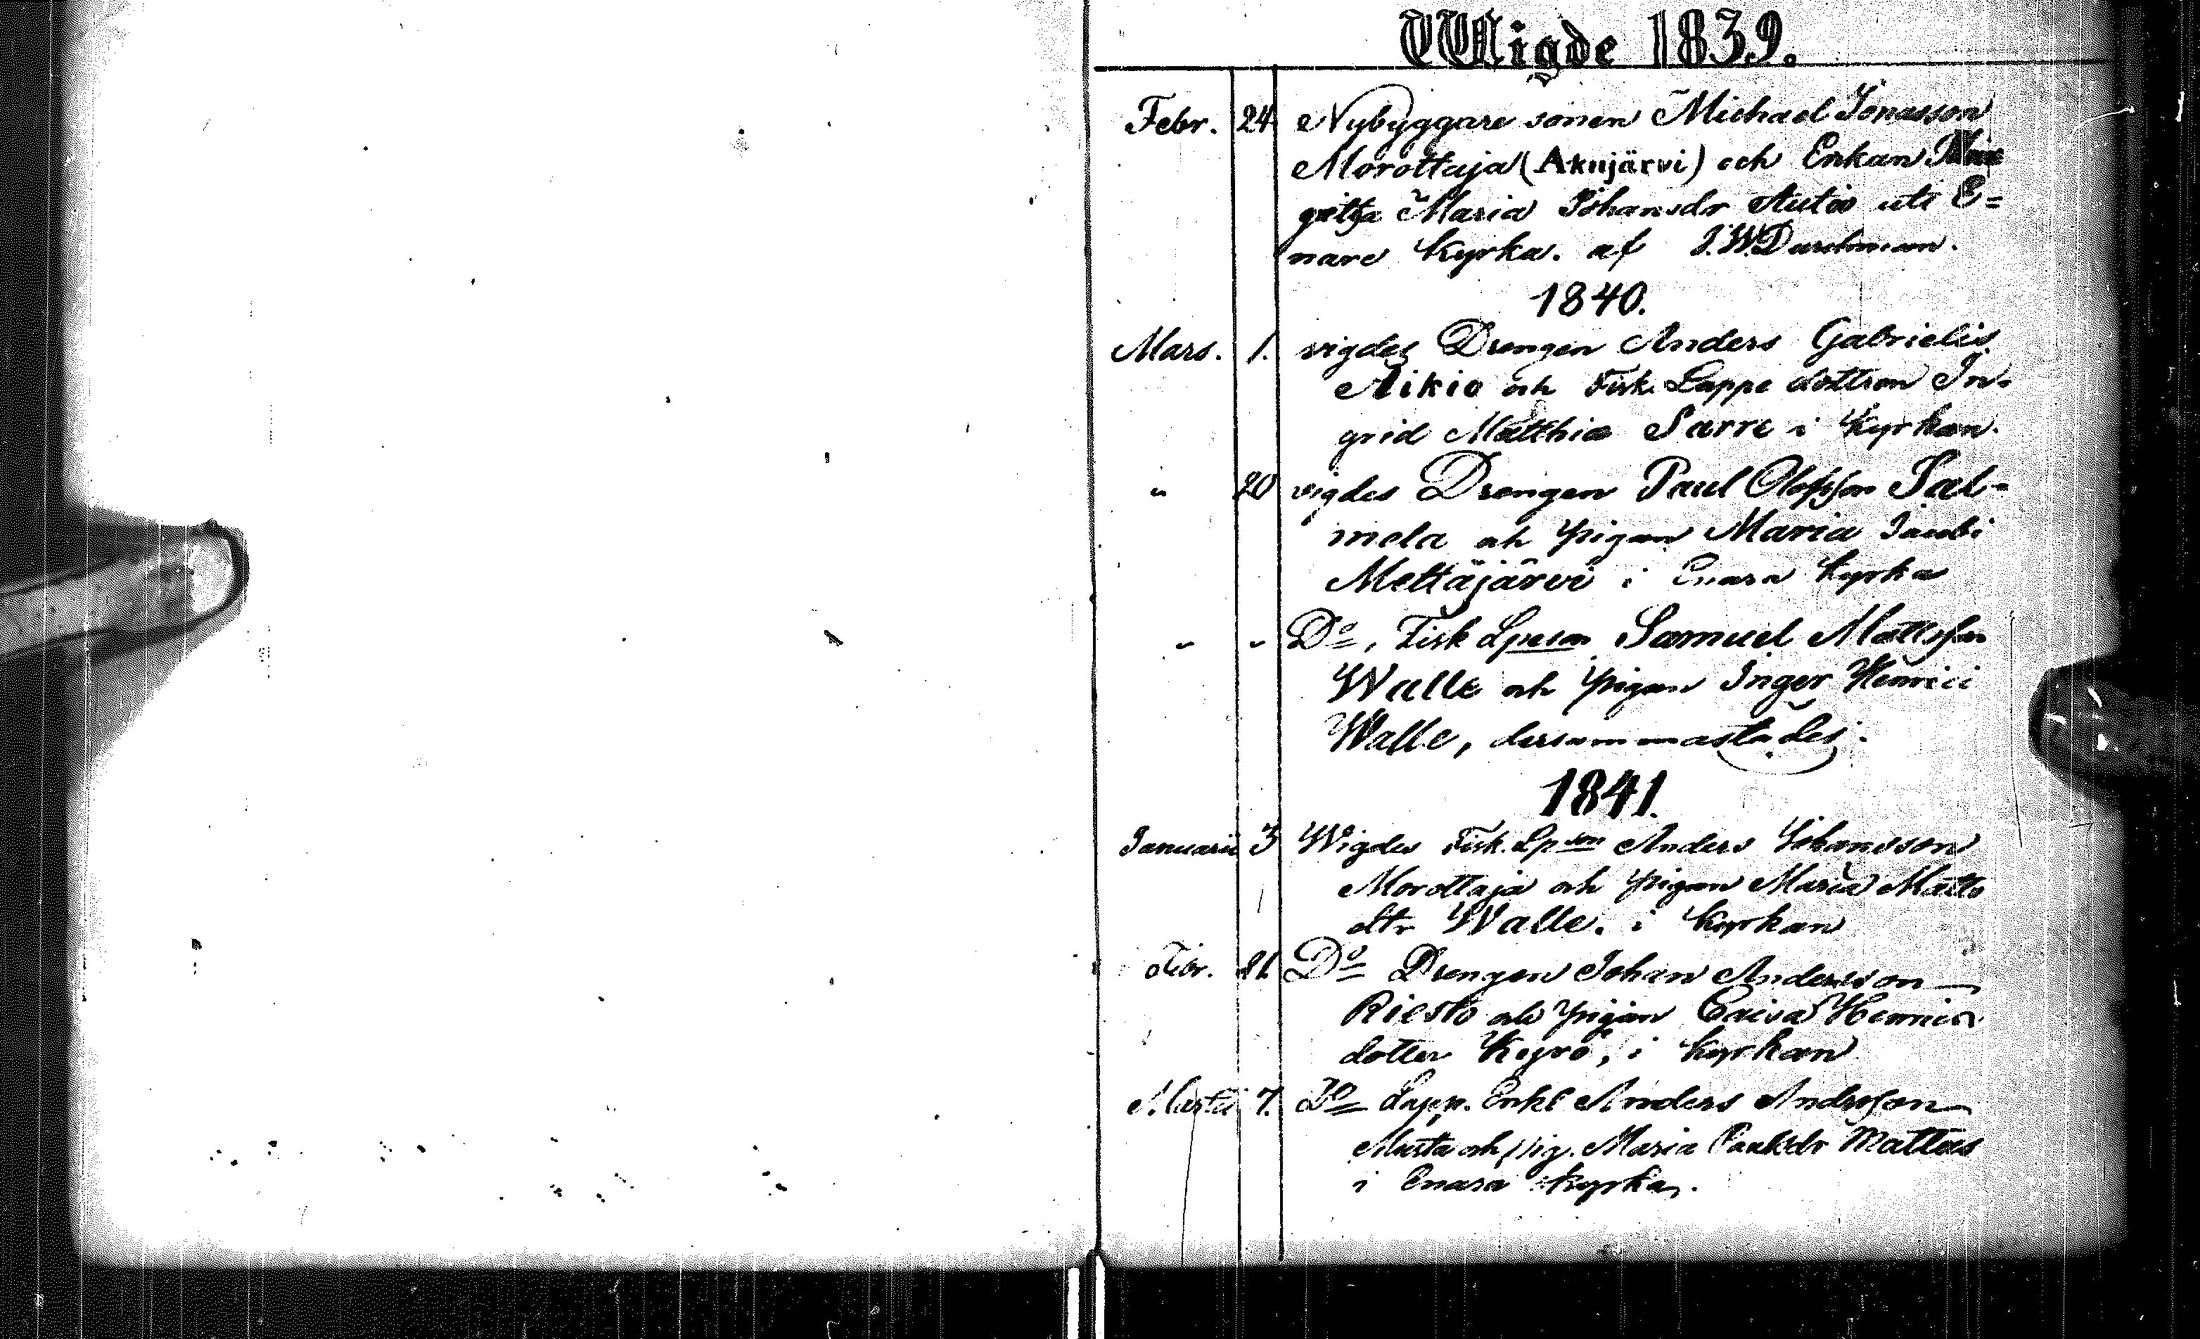 Wigde 1839.
Febr. 24 Nybyggare sonen Michael Jonasson
Morottaja (Akujärvi) och Enkan Mar
gitta Maria Johansdr Autio uti E=
nare Kyrka. af J.W. Durchman.
1840.
Mars. 1. vigdes Drengen Anders Gabrielis
Aikio och Fisk. Lappe dottren In-
grid Matthiæ Sarre i Kyrkan.
" 20 vigdes Drengen Paul Olofsson Sal-
mela och pigan Maria Jacobi
Mettäjärvi i Enara Kyrka
" " Do, Fisk Lpeson Samuel Mattsson
Walle och pigan Inger Henrici
Walle, dersammastädes.
1841.
Januarii 3 Wigdes Fisk. Lpson Anders Johansson
Morottaja och pigan Maria Matts
dtr Walle. i Kyrkan
Febr. 21 Do Drengen Johan Andersson
Riesto och pigan Caisa Henrics
dotter Kyrö, i Kyrkan
Martii 7. Do Lapp. Enkl Anders Andersson
Musta och pig. Maria Paulsdr Mattus
i Enara Kyrka.